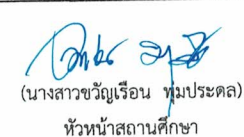 (นางสาวขวัญเรือน พุ่มประดล)
หัวหน้าสถานศึกษา